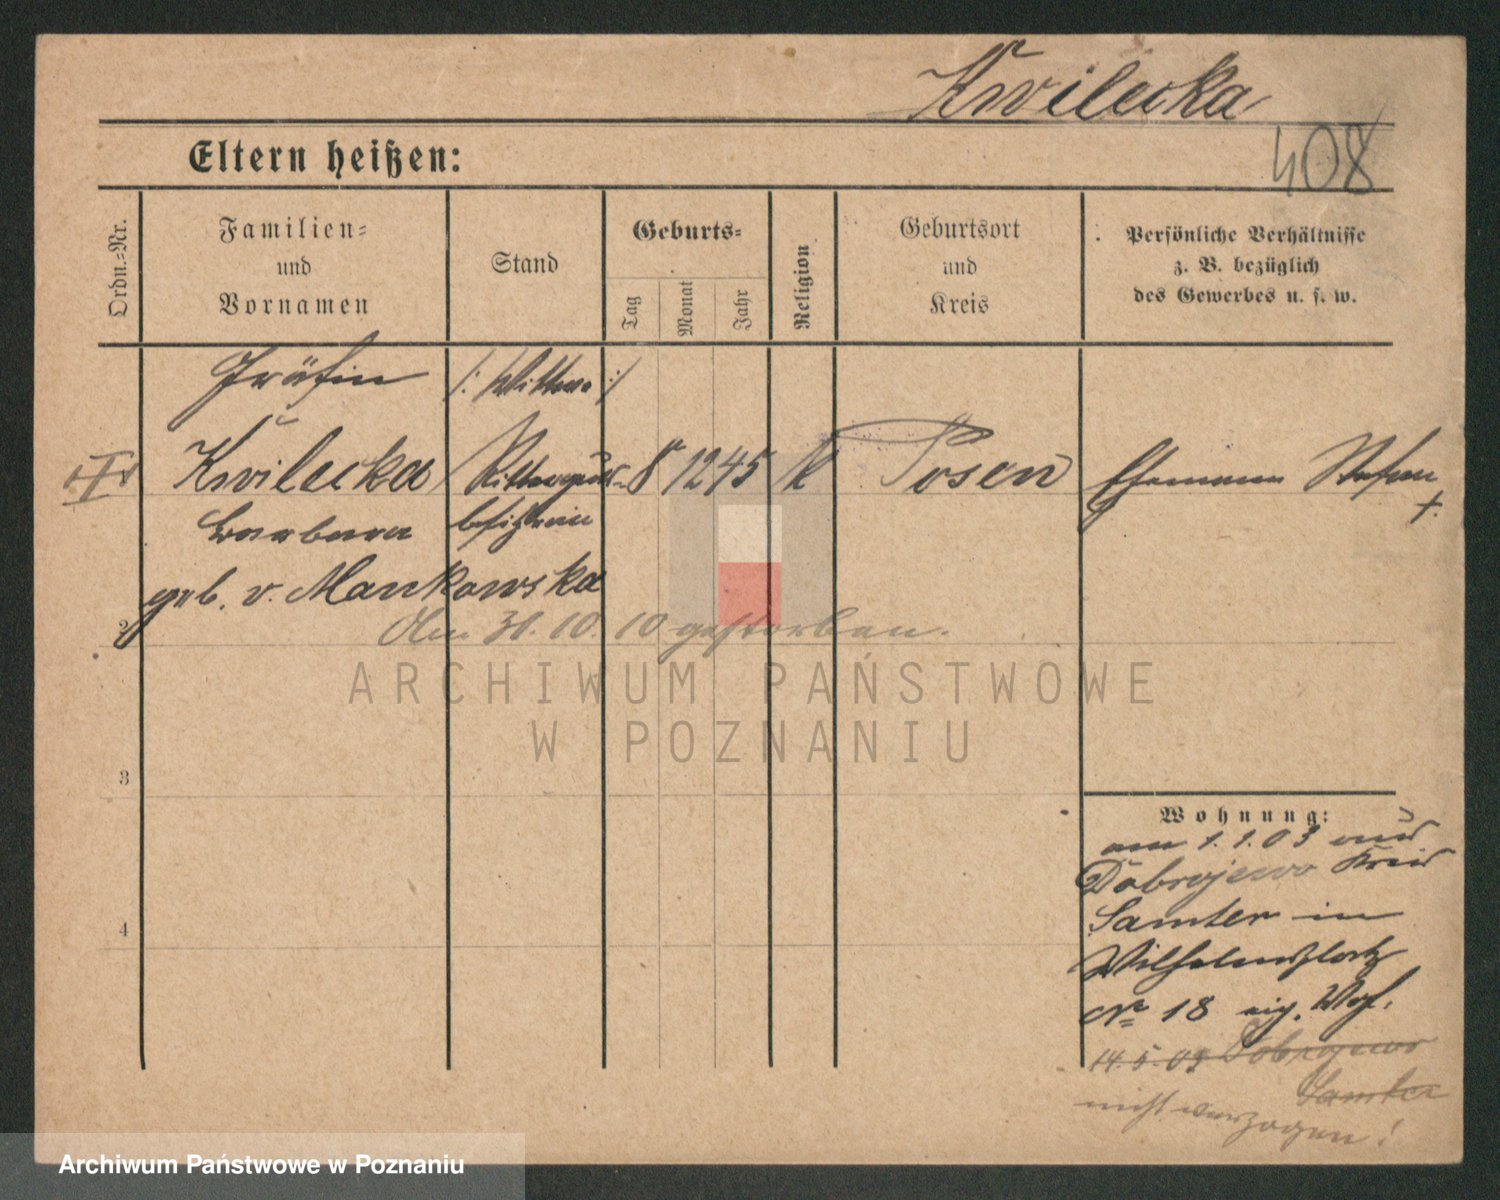 Kwilecka
408
Eltern heißen:
Ordn.=Nr.
Familien=
und
Vornamen
Stand
Geburts=
Tag
Monat
Jahr
Religion
Geburtsort
und
Kreis
Persönliche Verhältnisse
z. B. bezüglich
des Gewerbes u. s. w.
Gräfin /: Wittwe :/
Kwilecka Ritterguts- 8 12 45 k Posen Ehemann Stefan
Barbara besitzerin †.
geb. v. Mankowska
2
Am 31. 10. 10 gestorben.
ARCHIWUM PAŃSTWOWE
W POZNANIU
3
4
Wohnung:
am 1. 1. 03 aus
Dobrojewo Kreis
Samter in
Wilhelmsplatz
No 18 eig. Whg.
14. 5. 09 Dobrojewo
Samter
nicht verzogen!
Archiwum Państwowe w Poznaniu